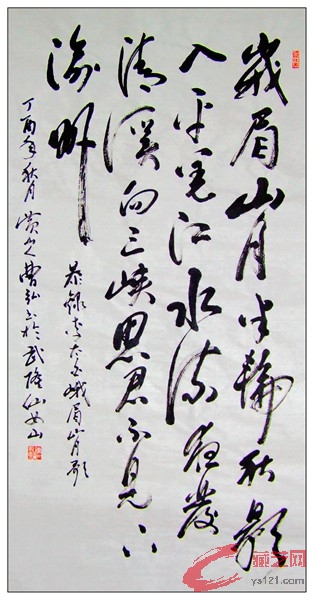 峩眉山月半輪秋影
入平羌江水流夜發
清溪向三峡思君不见下
渝州
恭錄李太白峨眉山月歌
丁酉年秋月曹弘书於武隆仙女山
藏艺网
ys121.com